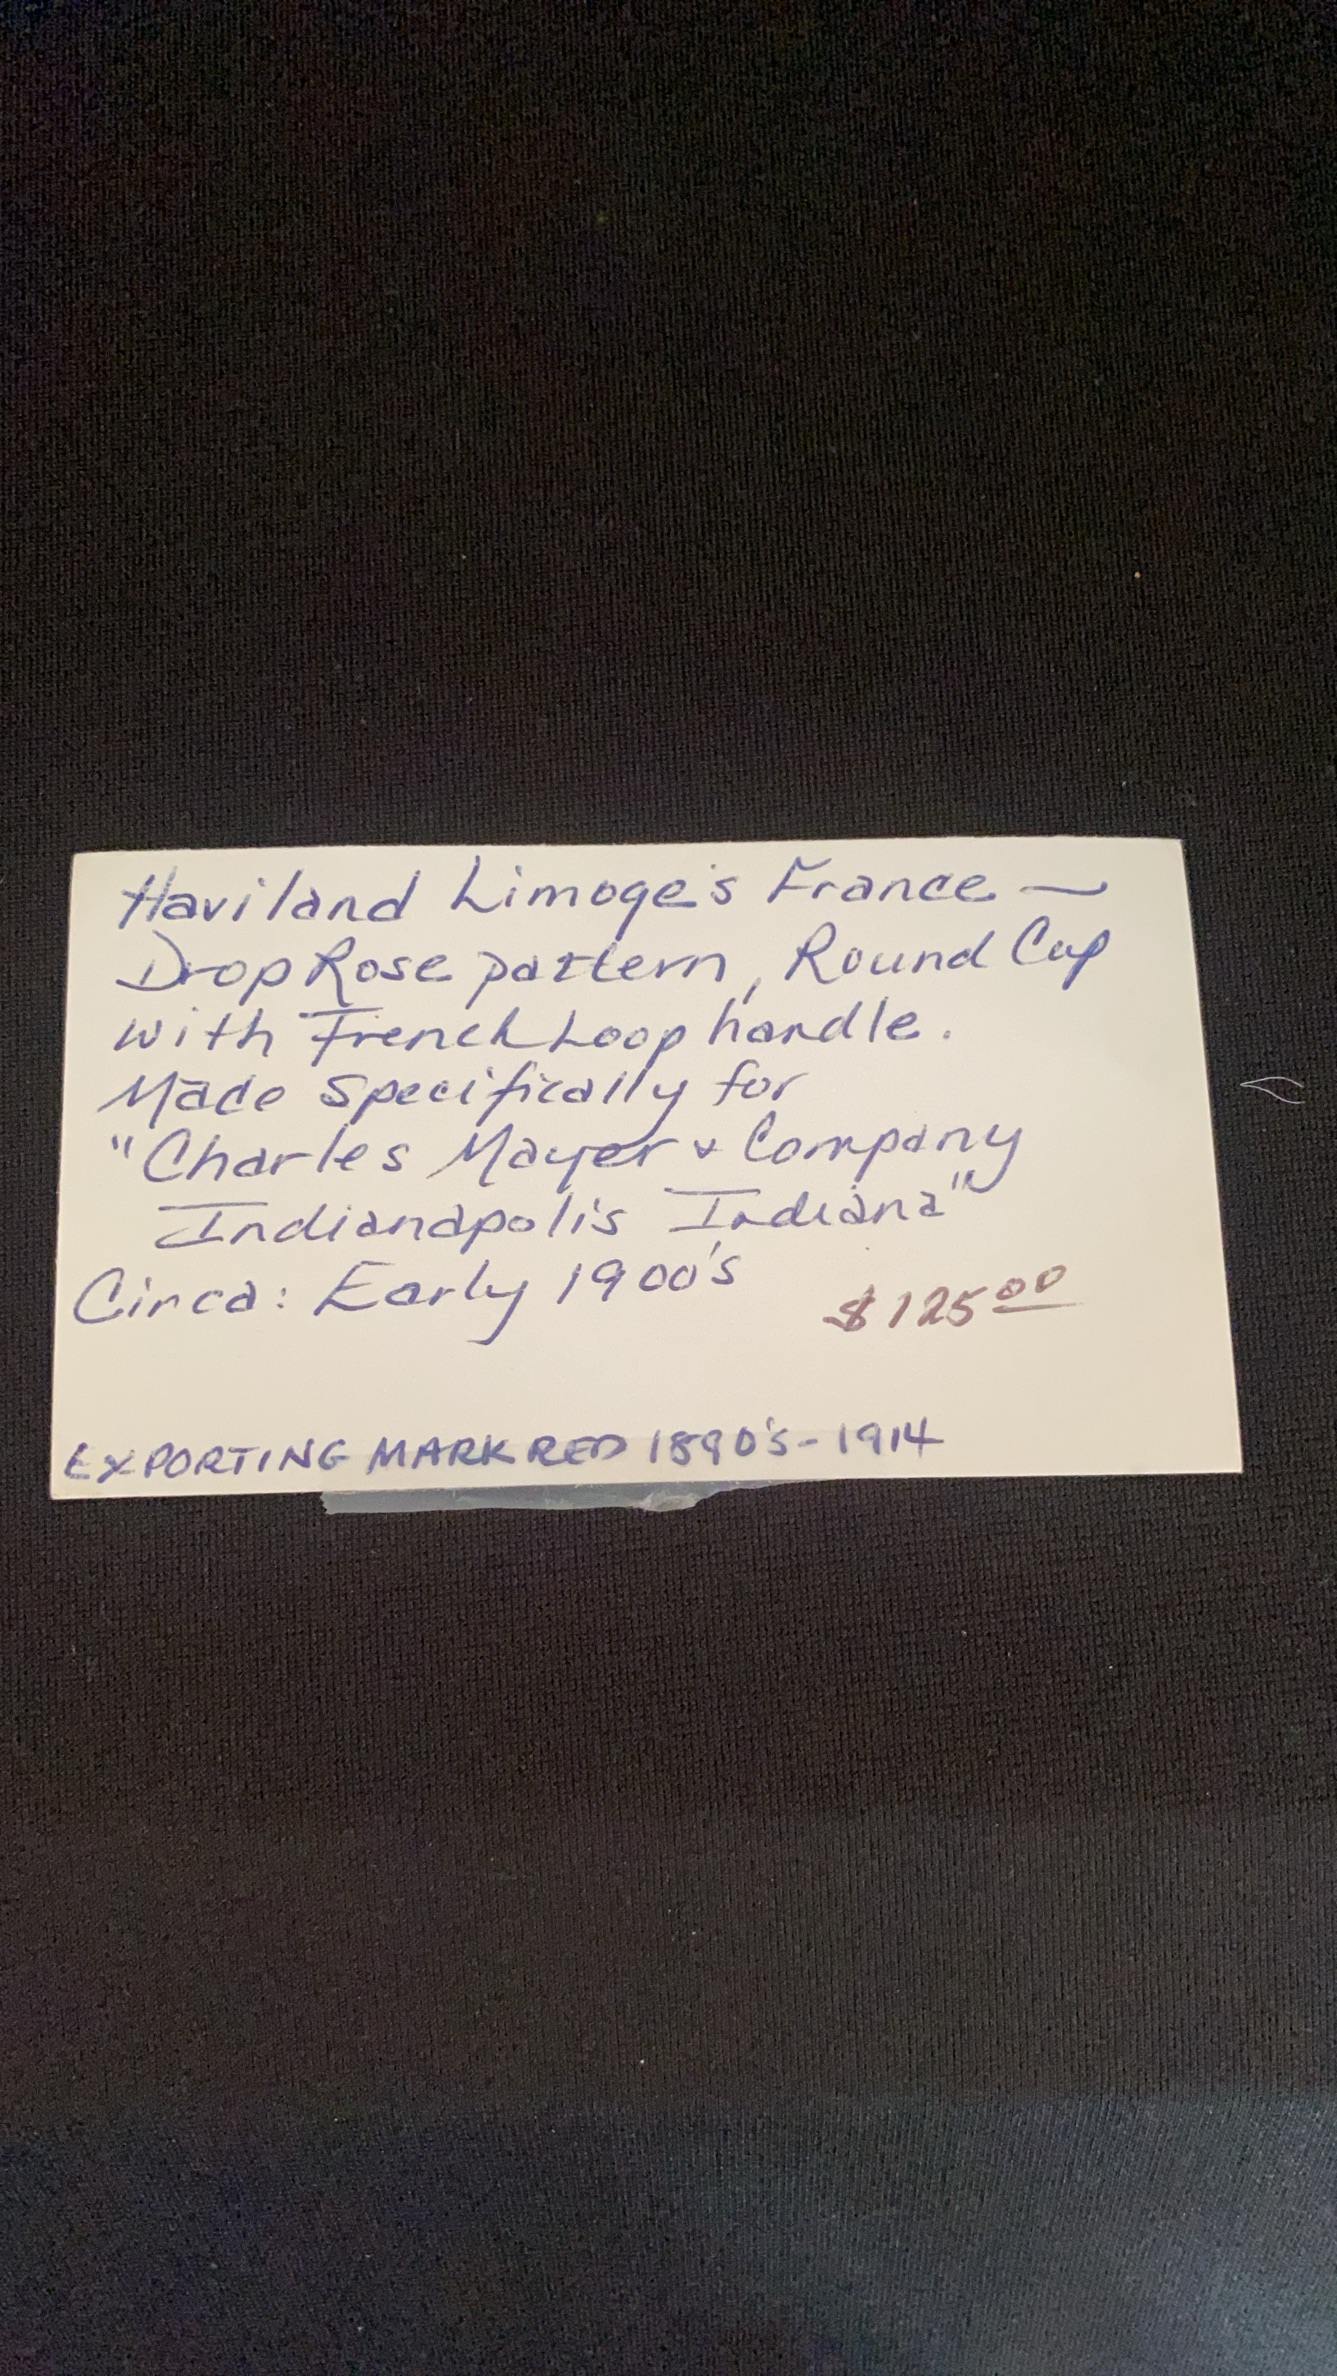 Haviland Limoge's France –
Drop Rose pattern, Round Cup
with French Loop handle.
Made specifically for
"Charles Mayer & Company
Indianapolis Indiana"
Circa: Early 1900's
$125.00
EXPORTING MARK RED 1890's - 1914